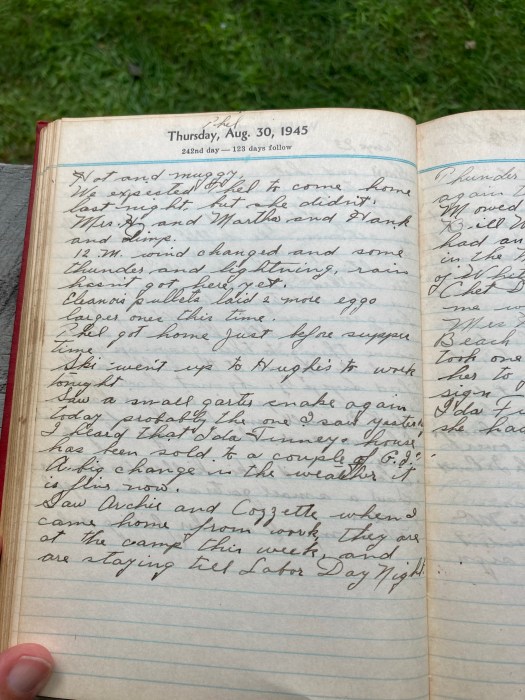 Phel
Thursday, Aug. 30, 1945
242nd day — 123 days follow
Hot and muggy.
We expected Phel to come home
last night but she didn't.
Mrs. Hy and Martha and Hank
and Dimp.
12 M. wind changed and some
thunder and lightning, rain
hasn't got here yet.
Eleanors pullets laid 2 more eggs
larger ones this time.
Phel got home just before supper
time.
Ski went up to Hughis to work
tonight
Saw a small garts snake again
today probably the one I saw yester
I heard that Ida Finneys house
has been sold to a couple of G.I.s
A big change in the weather it
is fair now.
Saw Archie and Cozzette when I
came home from work, they are
at the camp this week, and
are staying till Labor Day Night.
Thunder
again
Mowed
had an
in the
of Whi
Chet D
me w
Mrs
Beach
took one
her to
sign
Ida Fi
she had